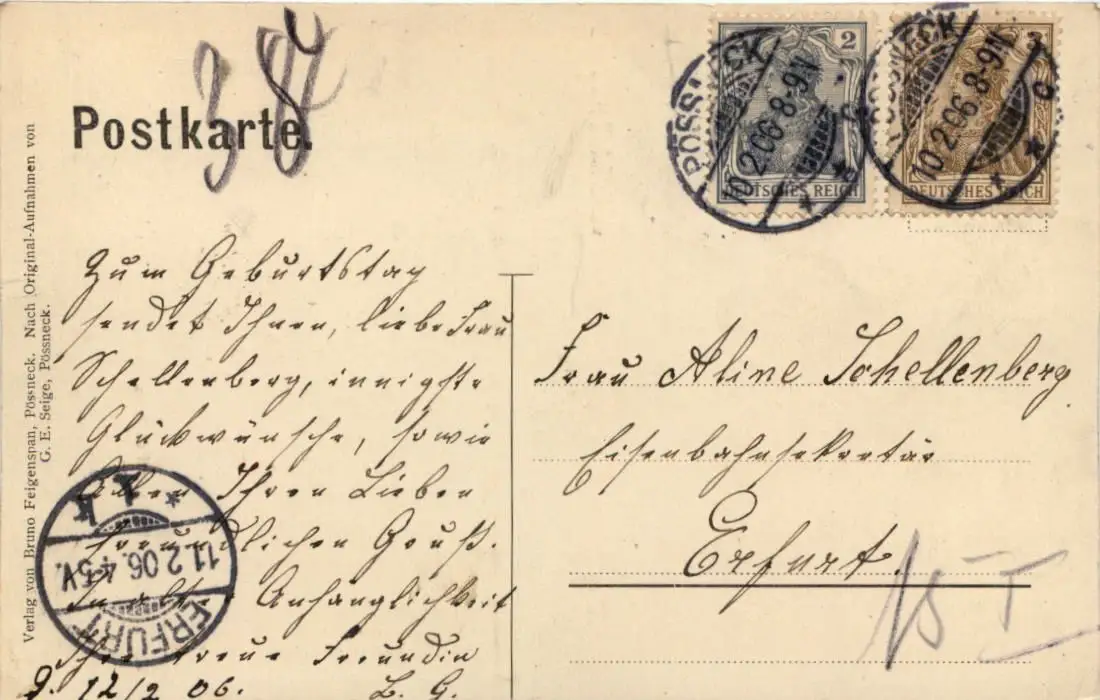 Postkarte.
38
2
DEUTSCHES REICH
PÖSSNECK
10.2.06.8-9N.
c
3
DEUTSCHES REICH
PÖSSNECK
10.2.06.8-9N.
c
Verlag von Bruno Feigenspan, Pössneck. Nach Original-Aufnahmen von
G. E. Seige, Pössneck.
Zum Geburtstag
sendet Ihnen, liebe Frau
Schellenberg, innigste
Glückwünsche, sowie
Allen Ihren Lieben
freundlichen Gruß.
In alter Anhänglichkeit
Ihre treue Freundin
12/2 06. L. G.
Frau Aline Schellenberg
Eisenbahnsekretär
Erfurt.
ERFURT
11.2.06.4-5V.
15 I